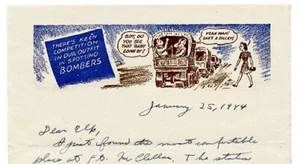 THERE'S KEEN
COMPETITION
IN OUR OUTFIT
IN SPOTTING
BOMBERS
BOY, DO
YOU SEE
THAT BABY
GOING BY?
YEAH MAN!
SHE'S A DILLY!
January 25, 1944
Dear Elp,
I just found the most comfortable
place at Ft. McClellan, The station